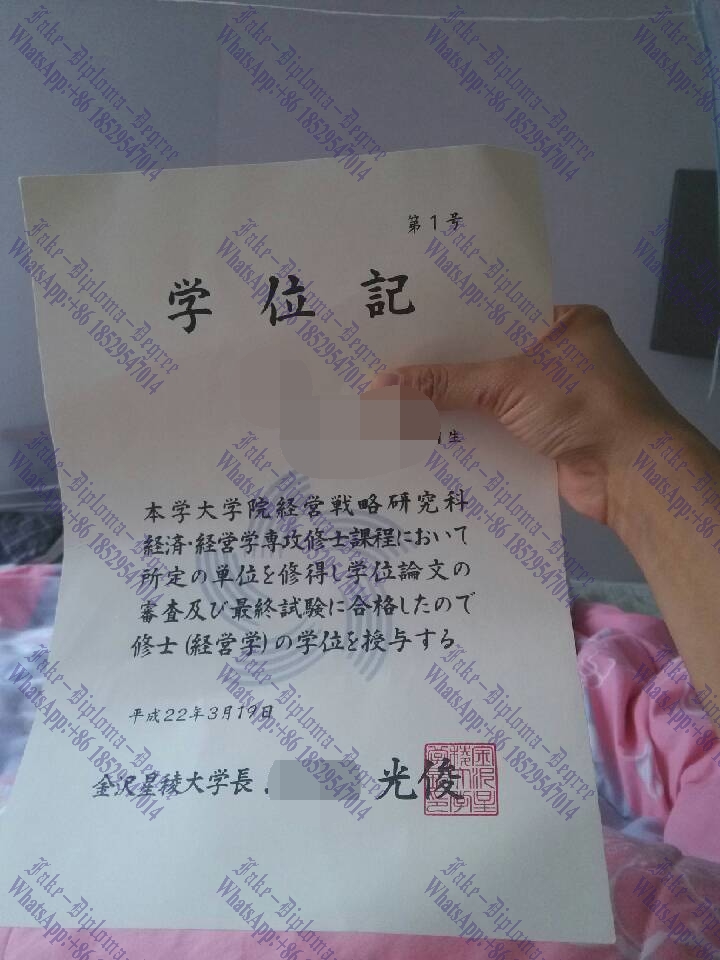 第1号
学位記
生
本学大学院経営戦略研究科
経済・経営学専攻修士課程において
所定の単位を修得し学位論文の
審査及び最終試験に合格したので
修士(経営学)の学位を授与する
平成22年3月19日
金沢星稜大学長 光俊
Fake-Diploma-Degree
WhatsApp:+86 18529547014